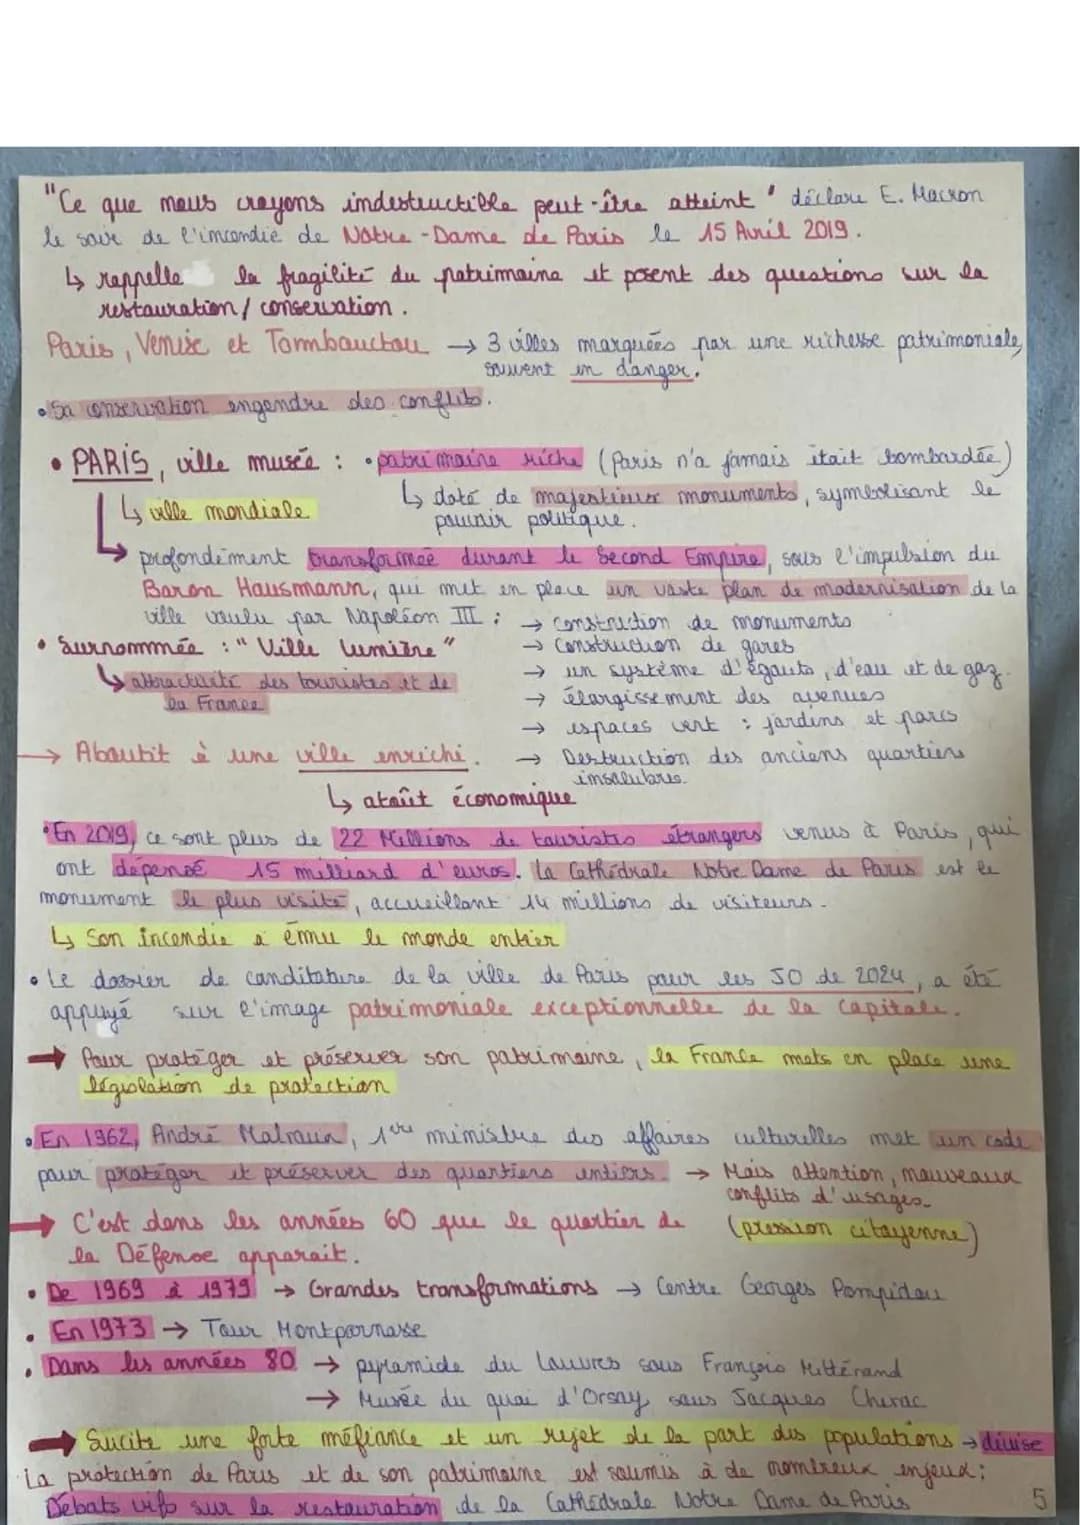 "Ce que nous croyons indestructible peut-être atteint" déclare E. Macron
le soir de l'incendie de Notre-Dame de Paris le 15 Avril 2019.
↳ rappelle la fragilité du patrimoine et posent des questions sur la
restauration / conservation.
Paris, Venise et Tombouctou → 3 villes marquées par une richesse patrimoniale,
souvent en danger.
• Sa conservation engendre des conflits.
• PARIS, ville musée : • patrimoine riche (Paris n'a jamais était bombardée)
↳ ville mondiale
↳ doté de majestieux monuments, symbolisant le
pouvoir politique.
↳ profondément transformée durant le Second Empire, sous l'impulsion du
Baron Hausmann, qui met en place un vaste plan de modernisation de la
ville voulu par Napoléon III : → construction de monuments
• Surnommée : "Ville lumière" → Construction de gares
↳ attractivité des touristes et de
la France
→ un système d'égouts, d'eau et de gaz.
→ élargissement des avenues
→ espaces vert : jardins et parcs
→ Aboutit à une ville enrichi. → Destruction des anciens quartiers
insalubres.
↳ atoût économique
• En 2019, ce sont plus de 22 Millions de touristes étrangers venus à Paris, qui
ont dépensé 15 milliard d'euros. La Cathédrale Notre Dame de Paris est le
monument le plus visité, accueillant 14 millions de visiteurs.
↳ Son incendie a ému le monde entier
• Le dossier de canditature de la ville de Paris pour les JO de 2024, a été
appuyé sur l'image patrimoniale exceptionnelle de la capitale.
→ Pour protéger et préserver son patrimoine, la France mets en place une
législation de protection
• En 1962, André Malraux, 1ère ministre des affaires culturelles met un code
pour protéger et préserver des quartiers entiers. → Mais attention, mauveaux
conflits d'usages.
→ C'est dans les années 60 que le quartier de (pression citoyenne)
la Défense apparait.
• De 1969 à 1979 → Grandes transformations → Centre Georges Pompidou
• En 1973 → Tour Montparnasse
• Dans les années 80 → pyramide du Louvres sous François Mittérand
→ Musée du quai d'Orsay sous Jacques Chirac
→ Sucite une forte méfiance et un rejet de la part des populations → divise
La protection de Paris et de son patrimoine est soumis à de nombreux enjeux :
Débats vifs sur la restauration de la Cathédrale Notre Dame de Paris
5